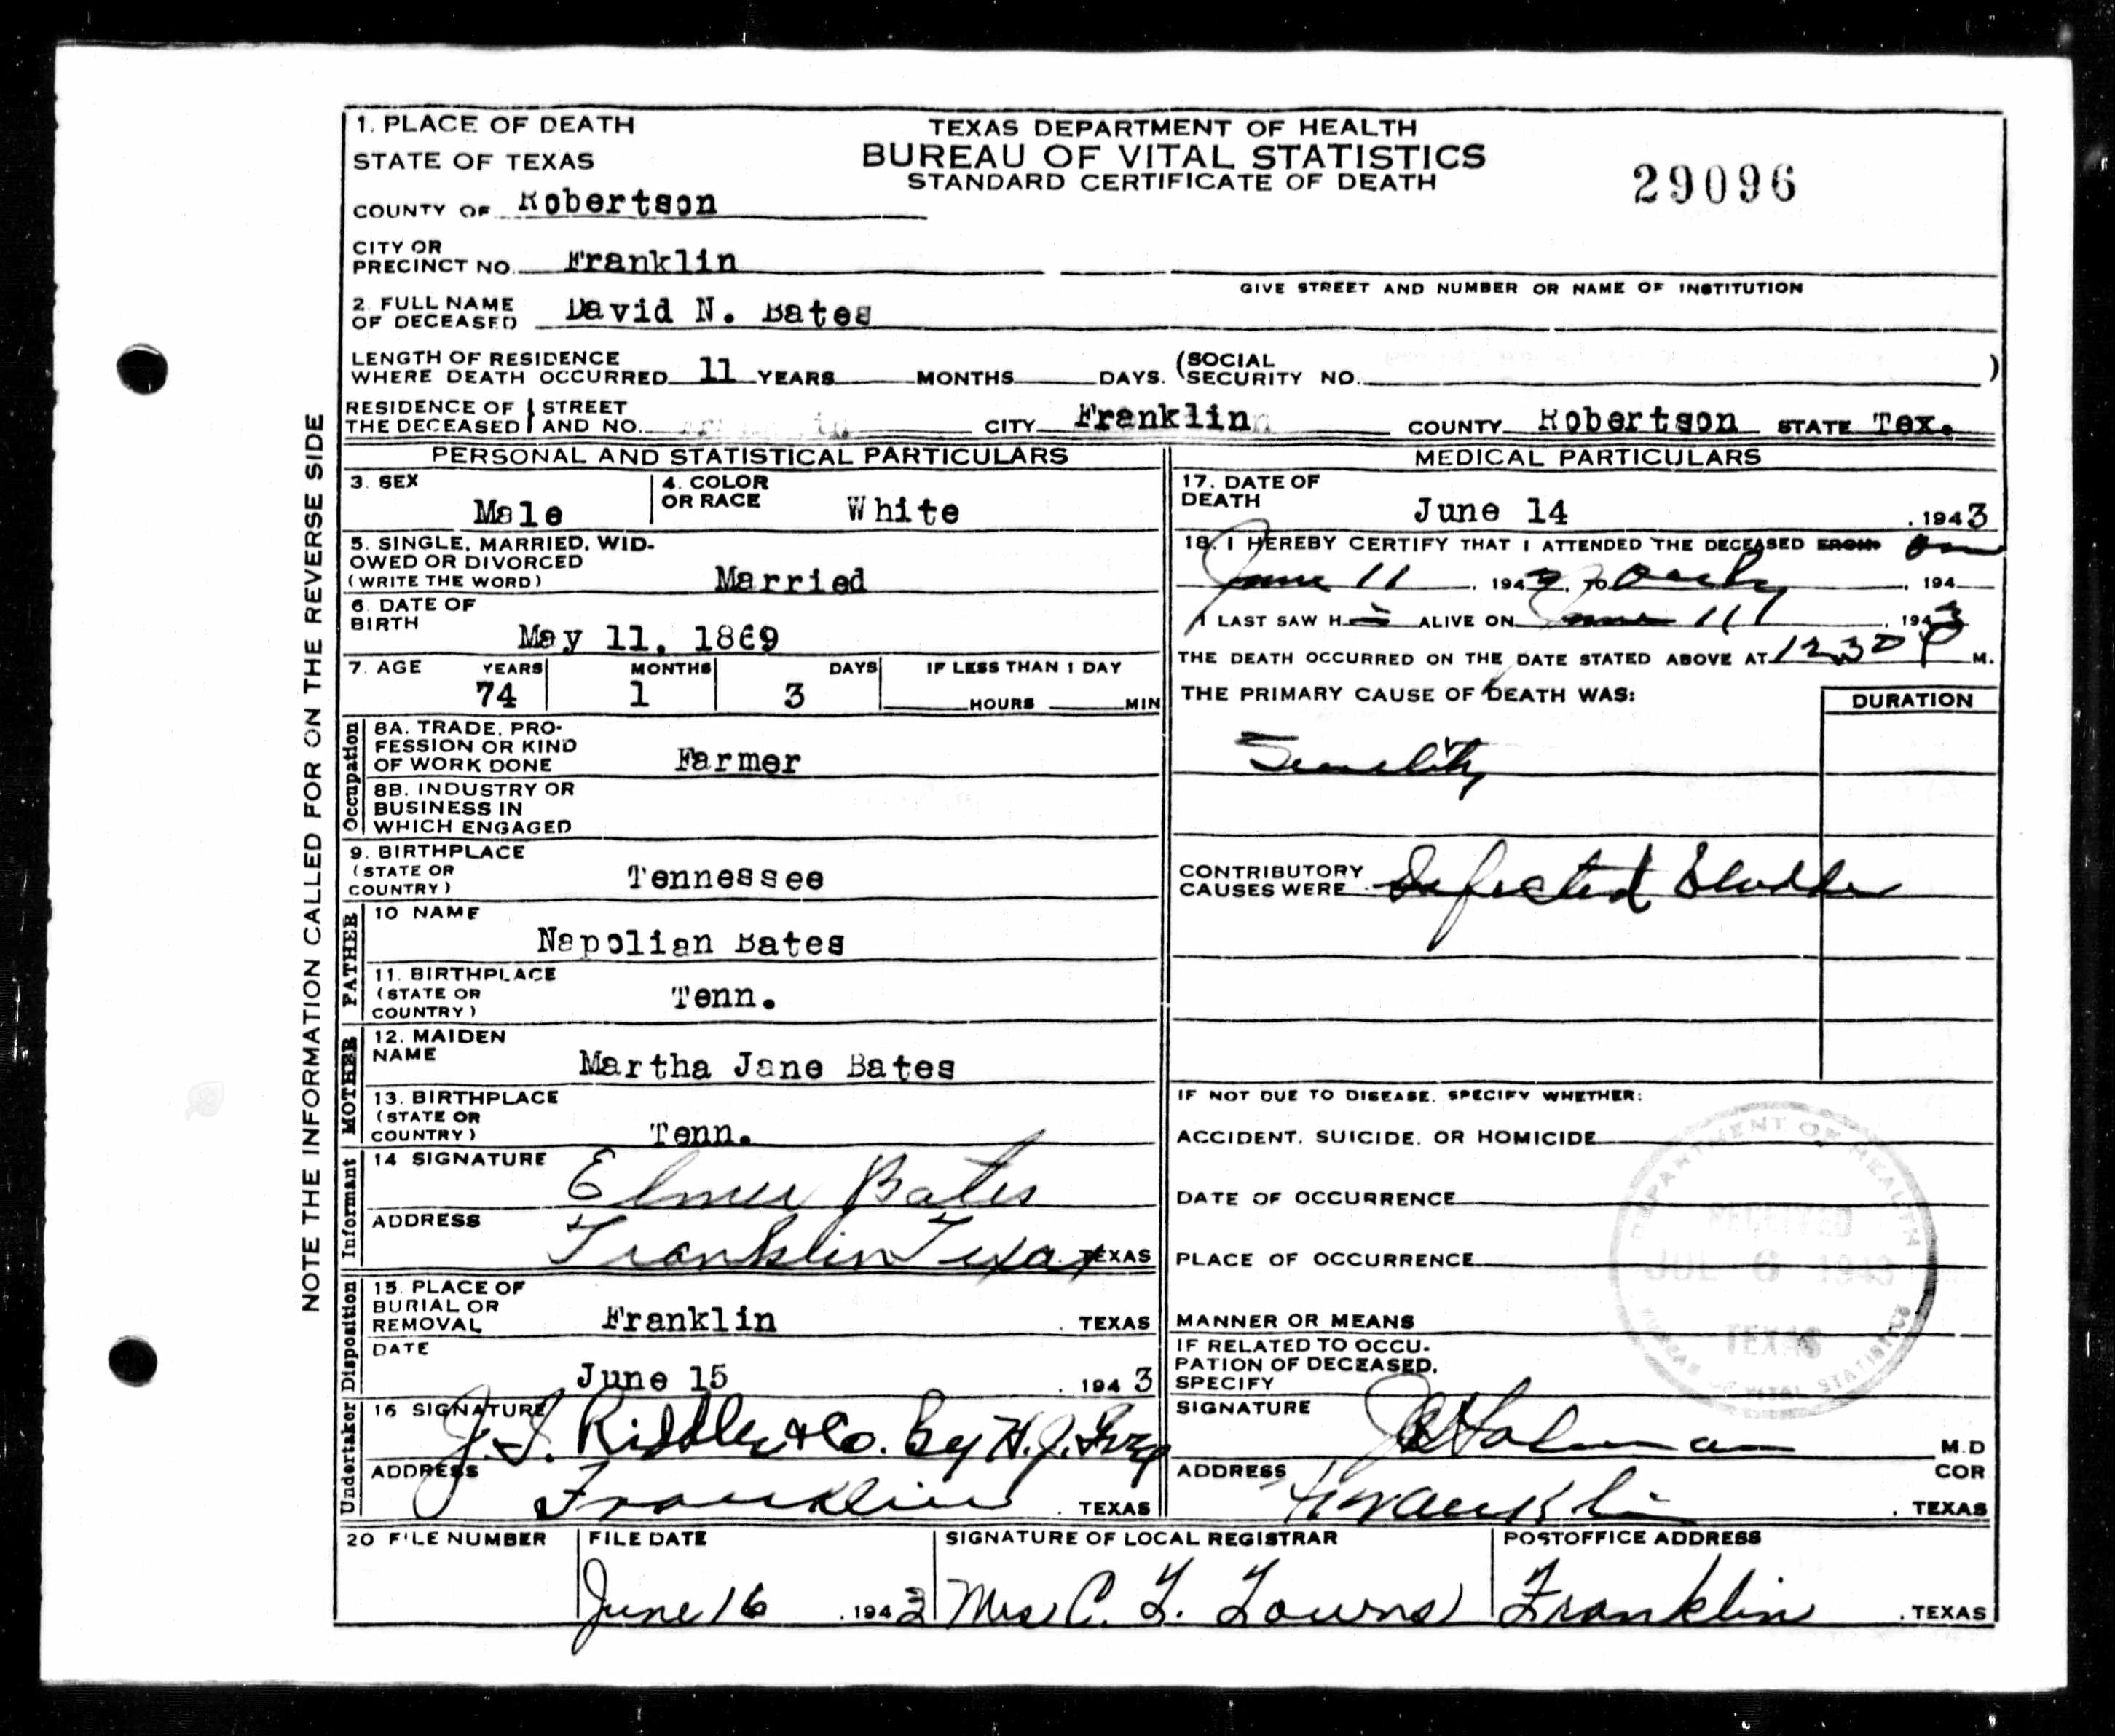 1. PLACE OF DEATH
STATE OF TEXAS
COUNTY OF Robertson
TEXAS DEPARTMENT OF HEALTH
BUREAU OF VITAL STATISTICS
STANDARD CERTIFICATE OF DEATH
29096
CITY OR
PRECINCT NO. Franklin
GIVE STREET AND NUMBER OR NAME OF INSTITUTION
2. FULL NAME
OF DECEASED David N. Bates
LENGTH OF RESIDENCE
WHERE DEATH OCCURRED 11 YEARS MONTHS DAYS. (SOCIAL SECURITY NO. )
RESIDENCE OF THE DECEASED } STREET AND NO. CITY Franklin COUNTY Robertson STATE Tex.
NOTE THE INFORMATION CALLED FOR ON THE REVERSE SIDE
PERSONAL AND STATISTICAL PARTICULARS
3. SEX Male
4. COLOR OR RACE White
5. SINGLE, MARRIED, WID-
OWED OR DIVORCED
(WRITE THE WORD) Married
6. DATE OF
BIRTH May 11, 1869
7. AGE YEARS MONTHS DAYS IF LESS THAN 1 DAY
74 1 3 HOURS MIN
Occupation
8A. TRADE, PRO-
FESSION OR KIND
OF WORK DONE Farmer
8B. INDUSTRY OR
BUSINESS IN
WHICH ENGAGED
9. BIRTHPLACE
(STATE OR
COUNTRY) Tennessee
FATHER
10 NAME
Napolian Bates
11. BIRTHPLACE
(STATE OR
COUNTRY) Tenn.
MOTHER
12. MAIDEN
NAME Martha Jane Bates
13. BIRTHPLACE
(STATE OR
COUNTRY) Tenn.
Informant
14 SIGNATURE Elmer Bates
ADDRESS Franklin Texas TEXAS
Disposition
15. PLACE OF
BURIAL OR
REMOVAL Franklin . TEXAS
DATE
June 15 . 1943
Undertaker
16 SIGNATURE J. Riddle & Co. By H. J.
ADDRESS Franklin . TEXAS
MEDICAL PARTICULARS
17. DATE OF
DEATH June 14 . 1943
18. I HEREBY CERTIFY THAT I ATTENDED THE DECEASED FROM on
June 11 . 1943, TO only , 194
I LAST SAW H ALIVE ON June 11 , 1943
THE DEATH OCCURRED ON THE DATE STATED ABOVE AT 12 30 P M.
THE PRIMARY CAUSE OF DEATH WAS:
DURATION
Senility
CONTRIBUTORY
CAUSES WERE Infected bladder
IF NOT DUE TO DISEASE, SPECIFY WHETHER:
ACCIDENT, SUICIDE, OR HOMICIDE
DATE OF OCCURRENCE
PLACE OF OCCURRENCE
MANNER OR MEANS
IF RELATED TO OCCU-
PATION OF DECEASED,
SPECIFY
DEPARTMENT OF HEALTH
RECEIVED
JUL 6 1943
TEXAS
BUREAU OF VITAL STATISTICS
SIGNATURE Holman M.D
COR
ADDRESS Franklin . TEXAS
20 FILE NUMBER
FILE DATE
June 16 . 1943
SIGNATURE OF LOCAL REGISTRAR
Mrs C. L. Towns
POSTOFFICE ADDRESS
Franklin . TEXAS